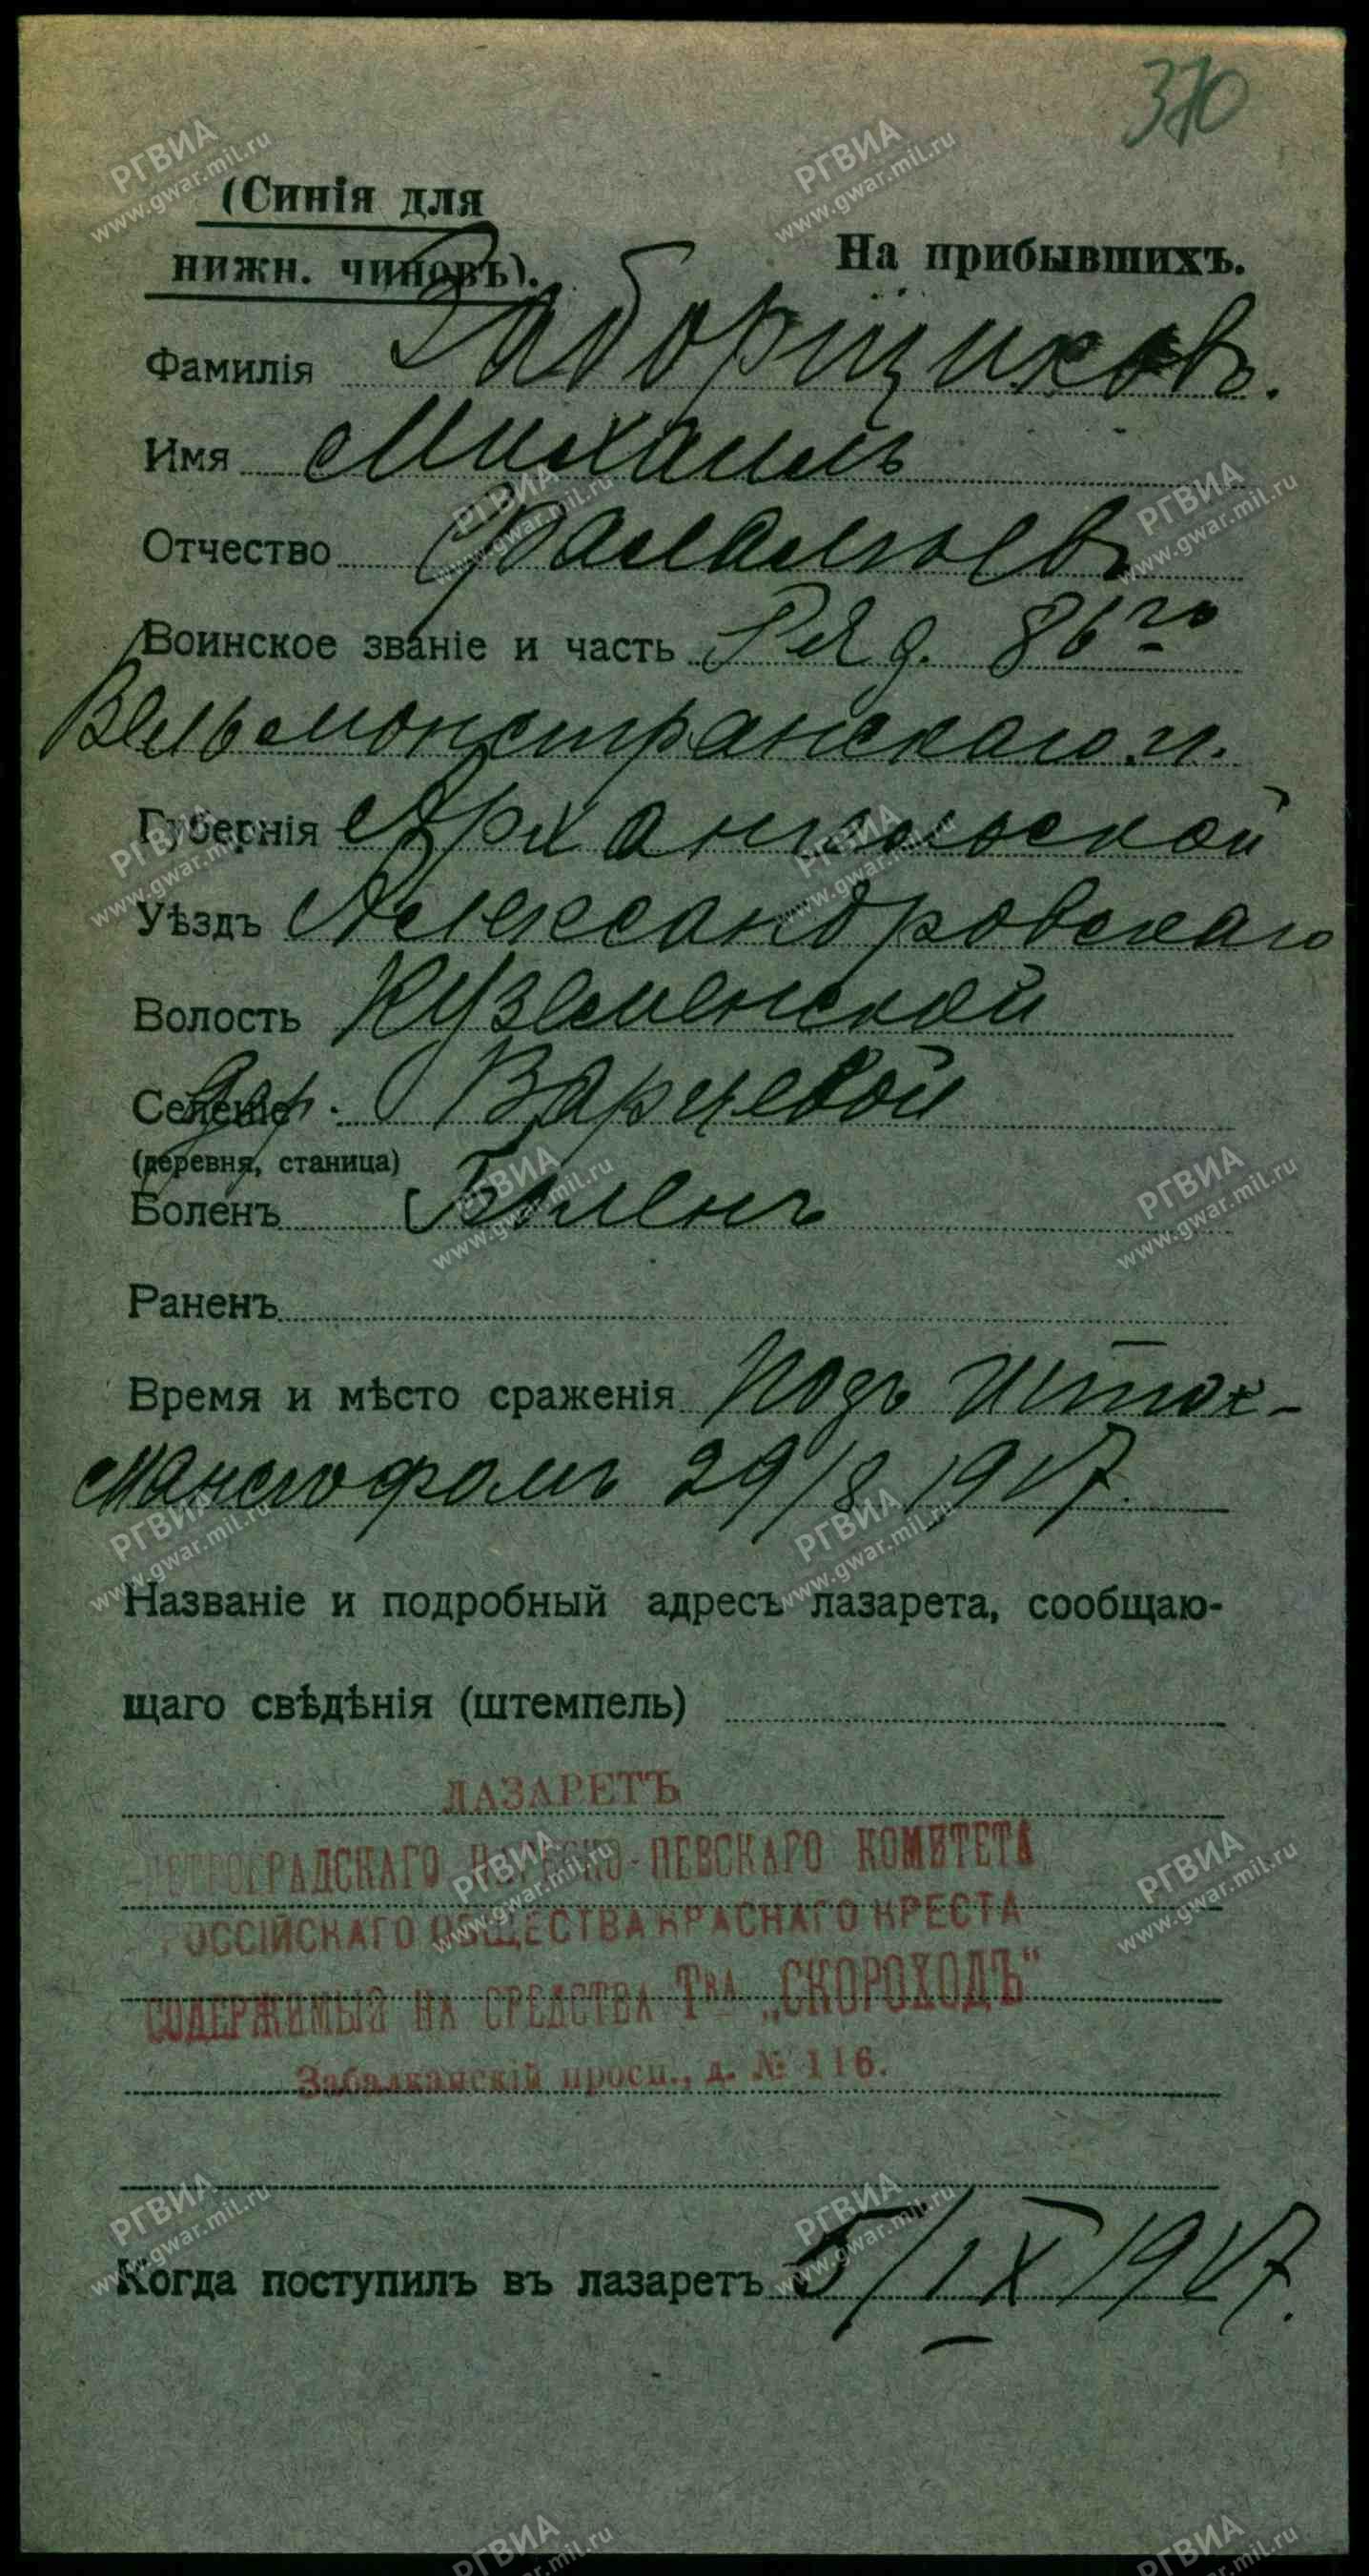 370
(Синія для
нижн. чиновъ).
На прибывшихъ.
Фамилія Заборщиковъ.
Имя Михаилъ
Отчество
Воинское званіе и часть Ряд. 86го
Вельмонстранскаго п.
Губернія Архангельской
Уѣздъ Александровскаго
Волость Кузоменской
Селеніе дер. Варзевой
(деревня, станица)
Боленъ Боленъ
Раненъ
Время и мѣсто сраженія Подъ Шток-
мансгофомъ 29/8 1917.
Названіе и подробный адресъ лазарета, сообщаю-
щаго свѣдѣнія (штемпель)
ЛАЗАРЕТЪ
ПЕТРОГРАДСКАГО НАРВСКО-НЕВСКАГО КОМИТЕТА
РОССІЙСКАГО ОБЩЕСТВА КРАСНАГО КРЕСТА
СОДЕРЖИМЫЯ НА СРЕДСТВА Тва „СКОРОХОДЪ"
Забалканскій просп., д. № 116.
Когда поступилъ въ лазаретъ 5/IX 1917.
РГВИА
www.gwar.mil.ru